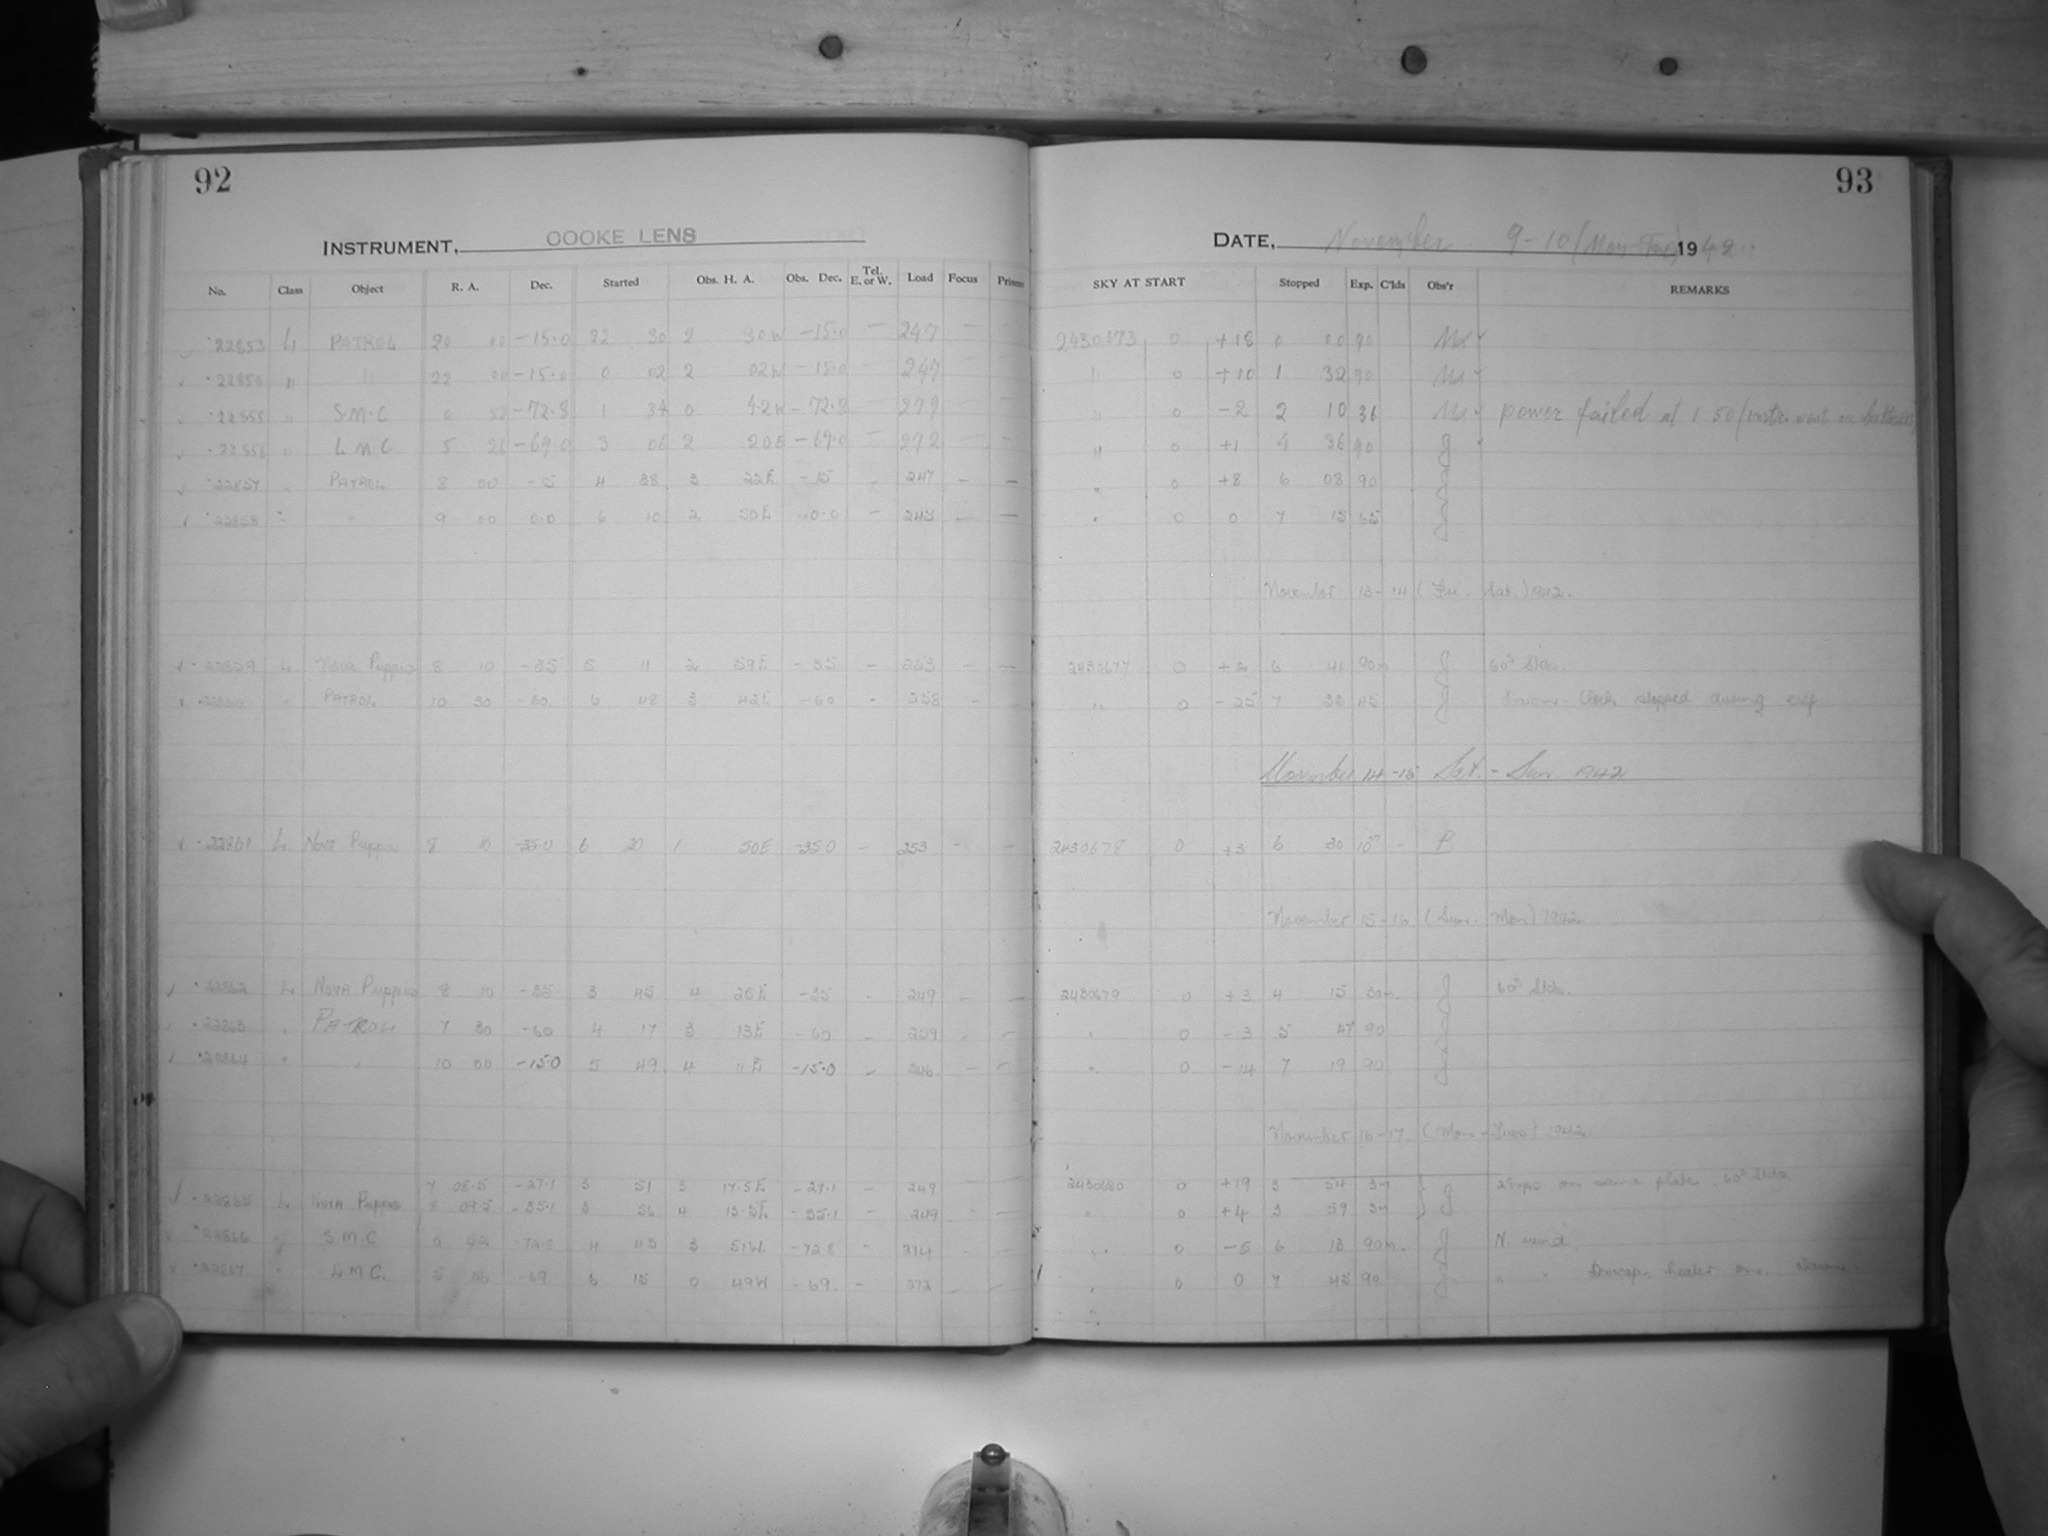 92
INSTRUMENT, COOKE LENS
No. Class Object R. A. Dec. Started Obs. H. A. Obs. Dec. Tel. E. or W. Load Focus Prisms
22853 L PATROL 20 00 -15.0 22 30 2 30W -15.0 — 247 —
22854 " " 22 00 -15.0 0 02 2 02W -15.0 — 247
22855 " S.M.C 0 52 -72.8 1 34 0 42W -72.8 — 279
22856 " L M C 5 26 -69.0 3 06 2 20E -69.0 — 272 —
22857 " PATROL 8 00 -15 4 38 3 22E -15 - 247 - —
22858 " " 9 00 0.0 6 10 2 50E 0.0 — 243 — —
22859 L Nova Puppis 8 10 -35 5 11 2 59E -35 - 253 - —
22860 " PATROL 10 30 -60 6 48 3 42E -60 - 258 -
22861 L Nova Puppis 8 10 -35.0 6 20 1 50E -35.0 — 253 - —
22862 L NOVA Puppis 8 10 -35 3 45 4 26E -35 - 249 - —
22863 " PATROL 7 30 -60 4 17 3 13E -60 - 259 -
22864 " " 10 00 -15.0 5 49 4 11E -15.0 - 246 - -
7 08.5 -27.1 3 51 3 17.5E -27.1 — 249
22865 L Nova Puppis 8 09.5 -35.1 3 56 4 13.5E -35.1 — 249 - —
22866 " S.M.C 0 -72.8 4 43 3 51W -72.8 - 274
22867 " L.M.C. 5 26 -69 6 15 0 49W -69. — 272
93
DATE, November 9-10 (Mon-Tue) 1942
SKY AT START Stopped Exp. C'lds Obs'r REMARKS
2430673 0 +18 0 00 90
" 0 +10 1 32 90
" 0 -2 2 10 36 power failed at 1 50
" 0 +1 4 36 90 J
" 0 +8 6 08 90 J
" 0 0 7 15 65 J
November 13-14 (Fri. - Sat.) 1942.
2430677 0 6 41 90m J 60° Slds.
" 0 -25 7 33 45 J Dawn. Clock stopped during exp.
November 14-15 Sat. - Sun. 1942
2430678 0 +3 6 30 10m - B
November 15-16 (Sun. - Mon) 1942
2430679 0 +3 4 15 30m. J 60° Slds.
" 0 -3 5 47 90 J
" 0 -14 7 19 90 J
November 16-17. (Mon - Tues) 1942.
2430680 0 +19 3 54 3m J 2 exps on same plate. 60° Slds.
" 0 +4 3 59 3m
" 0 -5 6 13 90m. J N. wind
" 0 0 7 45 90 J " " Dewcap heater on.